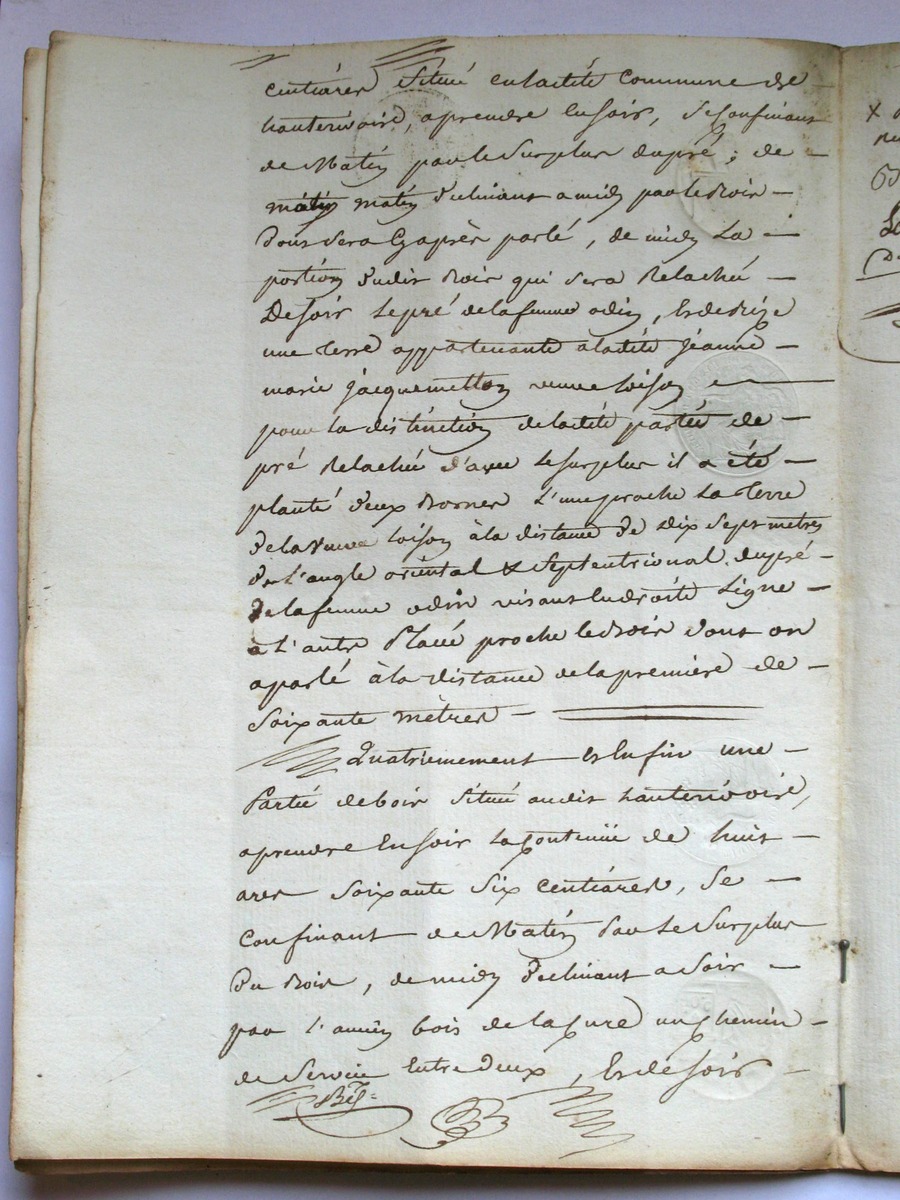 centiares Situé en ladite Commune de
hauterivoire, a prendre en soir, Se confinant
de Matin par le Surplus du pré ; de
matin matin declinant a midy par le Bois
dont sera Cy après parlé, de midy La
portion dudit Bois qui sera Relaché
De soir le pré de la femme odin, Et de Bize
une Terre appartenante a ladite jeanne
marie jacquemetton veuve Loison
pour la distinction de ladite partie de
pré Relaché d'avec Le surplus il a été
planté deux Bornes L'une proche La Terre
de la Veuve Loison à la distance de Dix Sept metres
de L'angle oriental & Septentrional du pré
de la femme odin visant En droite Ligne
à L'autre Placé proche le Bois dont on
a parlé à la distance de la première de
Soixante mètres
Quatriemement et Enfin une
Partie de bois Situé audit hauterivoire,
a prendre En soir La Contenüe de huit
ares Soixante Six Centiares, Se
Confinant de Matin Par Le Surplus
Du Bois, de midy declinant a Soir
par L'ancien bois de la Cure un Chemin
de Service Entre Deux, Et de soir